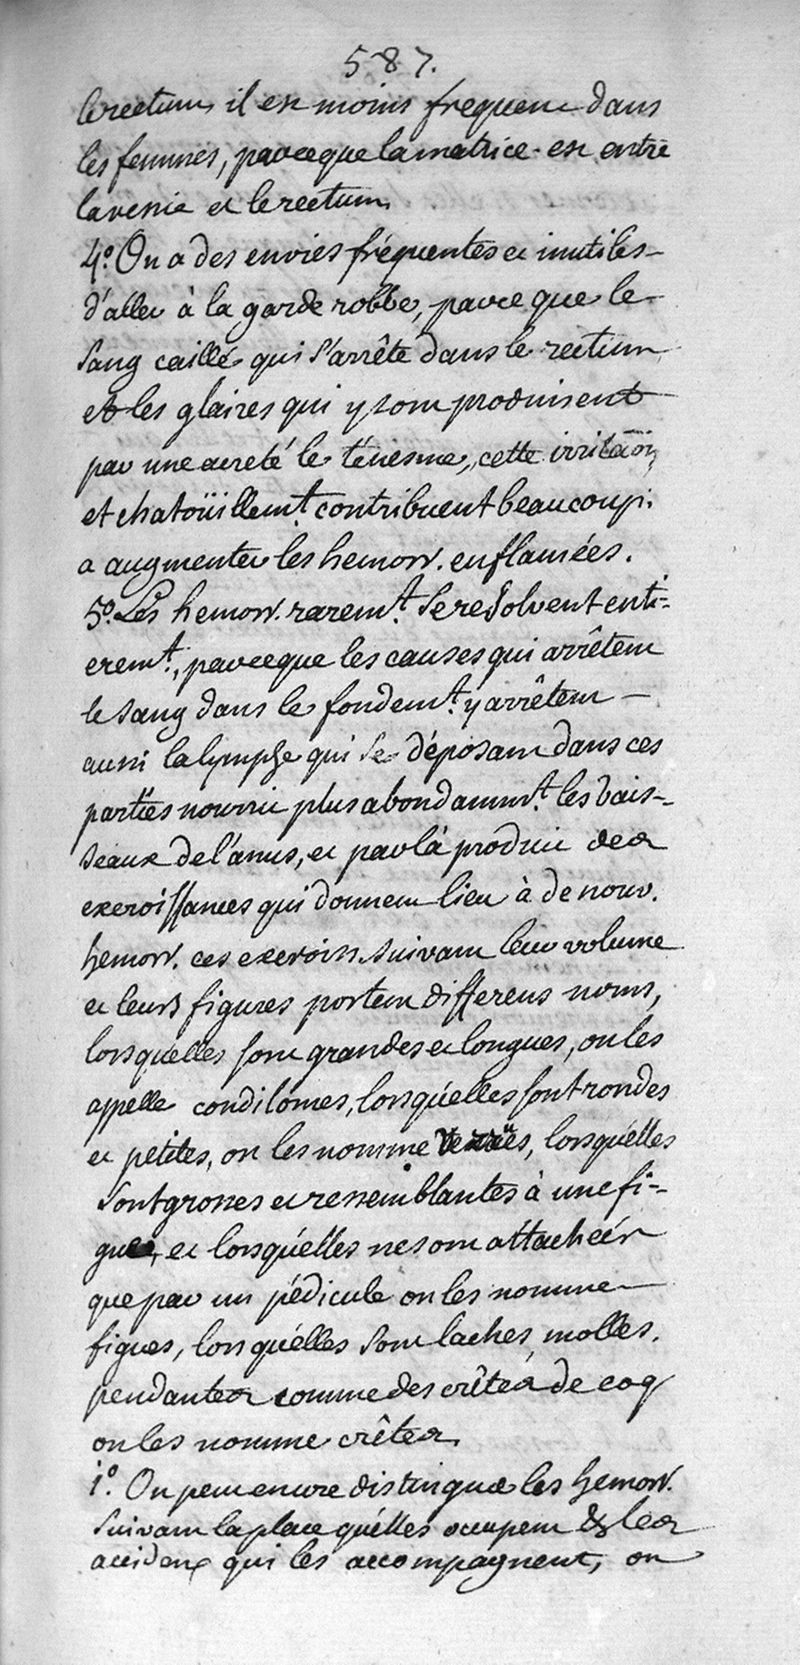 587.
le rectum, il est moins frequent dans
les femmes, parceque la matrice est entre
la vessie et le rectum.
4.º On a des envies fréquentes et inutiles
d'aller à la garde robbe, parce que le
sang caillé qui s'arrête dans le rectum
et les glaires qui y sont produisent
par une acreté le ténesme, cette irritaõn
et chatoüillemt. contribuent beaucoup
a augmenter les hemorr. enflamées.
5º. Les hemorr. raremt. se resolvent enti=
eremt., parceque les causes qui arrêtent
le sang dans le fondemt. y arrêtent
aussi la lymphe qui se déposant dans ces
parties nourrit plus abondammt. les vais-
seaux de l'anus, et par là produit des
excroissances qui donnent lieu à de nouv.
hemorr. ces excroiss. suivant leur volume
et leurs figures portent differens noms,
lorsquelles sont grandes et longues, on les
appelle condilomes, lorsqu'elles sont rondes
et petites, on les nomme verrües, lorsqu'elles
sont grosses et ressemblantes à une fi=
gue, et lorsqu'elles ne sont attacheés
que par un pédicule on les nomme
figues, lorsqu'elles sont laches, molles,
pendantes comme des crêtes de coq
on les nomme crêtes.
1.º On peut encore distinguer les hemorr.
suivant la place qu'elles occupent & les
accidens qui les accompagnent, on